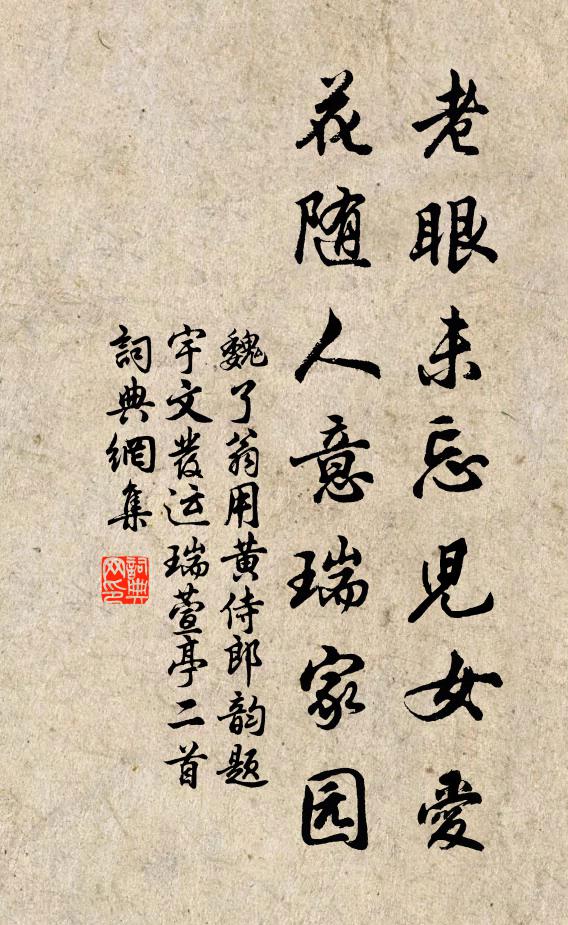 老眼未忘児女愛
花随人意瑞家园
魏了翁用黄侍郎韵题
宇文發运瑞萱亭二首
詞典網集
詞典
网印